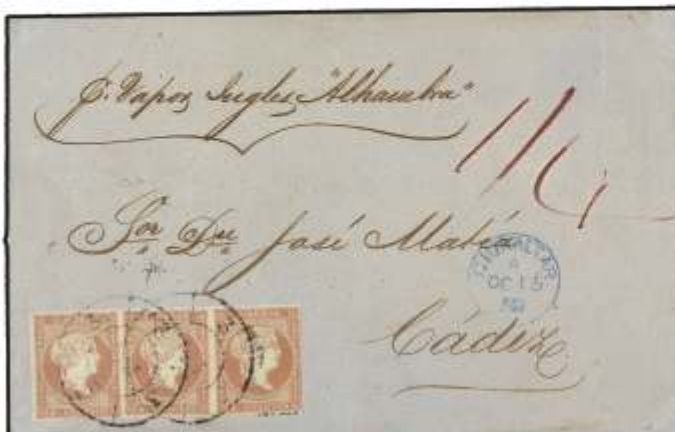 p. Vapor Ingles "Alhambra"
1/4
Sor Dn José Matia
GIBRALTAR
A
OC 15
Cádiz